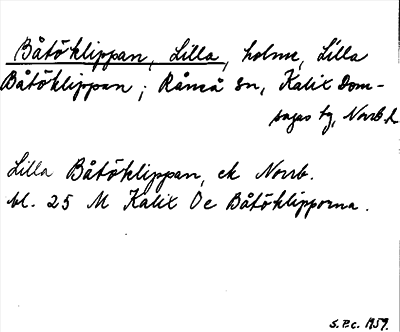 Båtöklippan, Lilla, holme, Lilla
Båtöklippan; Råneå sn, Kalix dom-
sagas tg, Norrb. l.
Lilla Båtöklippan, ek Norrb.
bl. 25 M Kalix Oe Båtöklipporna.
S. P:c. 1959.